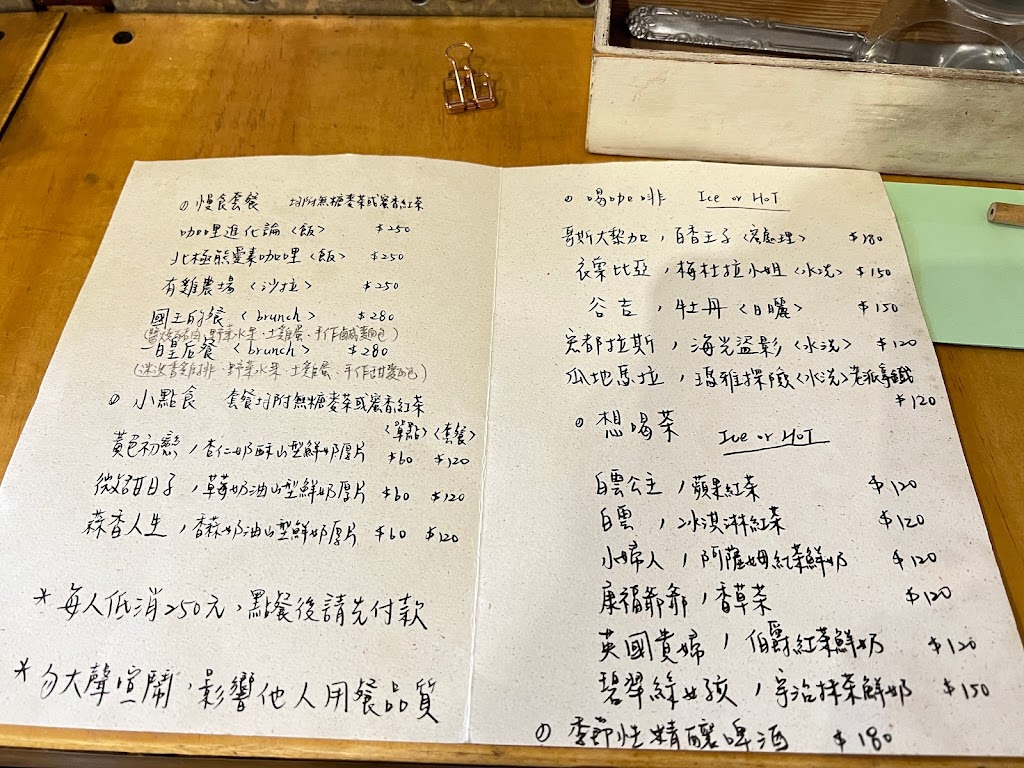 慢食套餐 均附無糖麥茶或蜜香紅茶
咖哩進化論〈飯〉 $250
北極熊愛素咖哩〈飯〉 $250
有雞農場〈沙拉〉 $250
國王的餐〈brunch〉 $280
野菜水果、土雞蛋、手作鹹麵包）
皇后餐〈brunch〉 $280
（迷迭香雞排、野菜水果、土雞蛋、手作甜麵包）
小點食 套餐均附無糖麥茶或蜜香紅茶
〈單點〉〈套餐〉
黃色初戀，杏仁奶酥山型鮮奶厚片 $60 $120
微甜日子，草莓奶油山型鮮奶厚片 $60 $120
蒜香人生，香蒜奶油山型鮮奶厚片 $60 $120
*每人低消250元，點餐後請先付款
*勿大聲喧鬧，影響他人用餐品質
喝咖啡 Ice or HoT
哥斯大黎加，百香王子〈蜜處理〉 $180
衣索比亞，梅杜拉小姐〈水洗〉 $150
谷吉，牡丹〈日曬〉 $150
宏都拉斯，海光盜影〈水洗〉 $120
瓜地馬拉，瑪雅探險〈水洗〉老派拿鐵
$120
想喝茶 Ice or HoT
白雲公主，蘋果紅茶 $120
白雲，冰淇淋紅茶 $120
小婦人，阿薩姆紅茶鮮奶 $120
康福爺爺，香草茶 $120
英國貴婦，伯爵紅茶鮮奶 $120
碧翠絲女孩，宇治抹茶鮮奶 $150
季節性精釀啤酒 $180